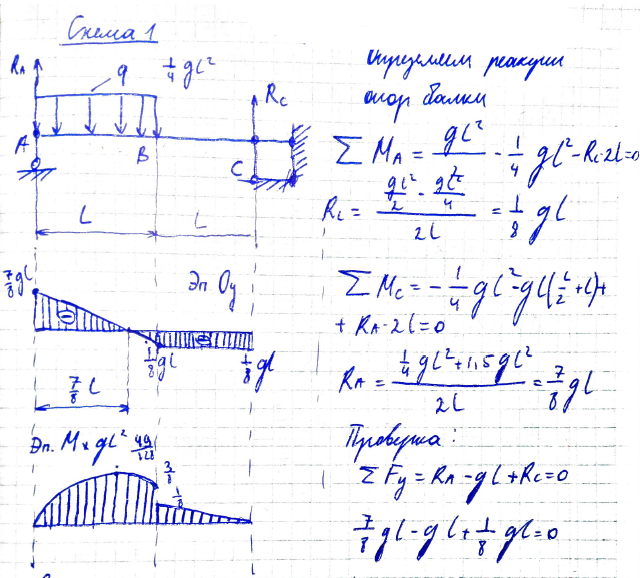 Схема 1
R_A
q
1/4 gl²
R_C
A
B
C
L
L
7/8 gl
Эп. Qy
⊖
⊖
1/8 gl
1/8 gl
7/8 l
Эп. Mx gl² 49/128
3/8
1/8
Определяем реакции
опор балки
∑ M_A = gl²/2 - 1/4 gl² - R_C·2l=0
R_C = (gl²/2 - gl²/4)/2l = 1/8 gl
∑ M_C = -1/4 gl² - gl(l/2 + l) +
+ R_A·2l=0
R_A = (1/4 gl² + 1,5 gl²)/2l = 7/8 gl
Проверка:
∑ Fy = R_A - gl + R_C = 0
7/8 gl - gl + 1/8 gl = 0